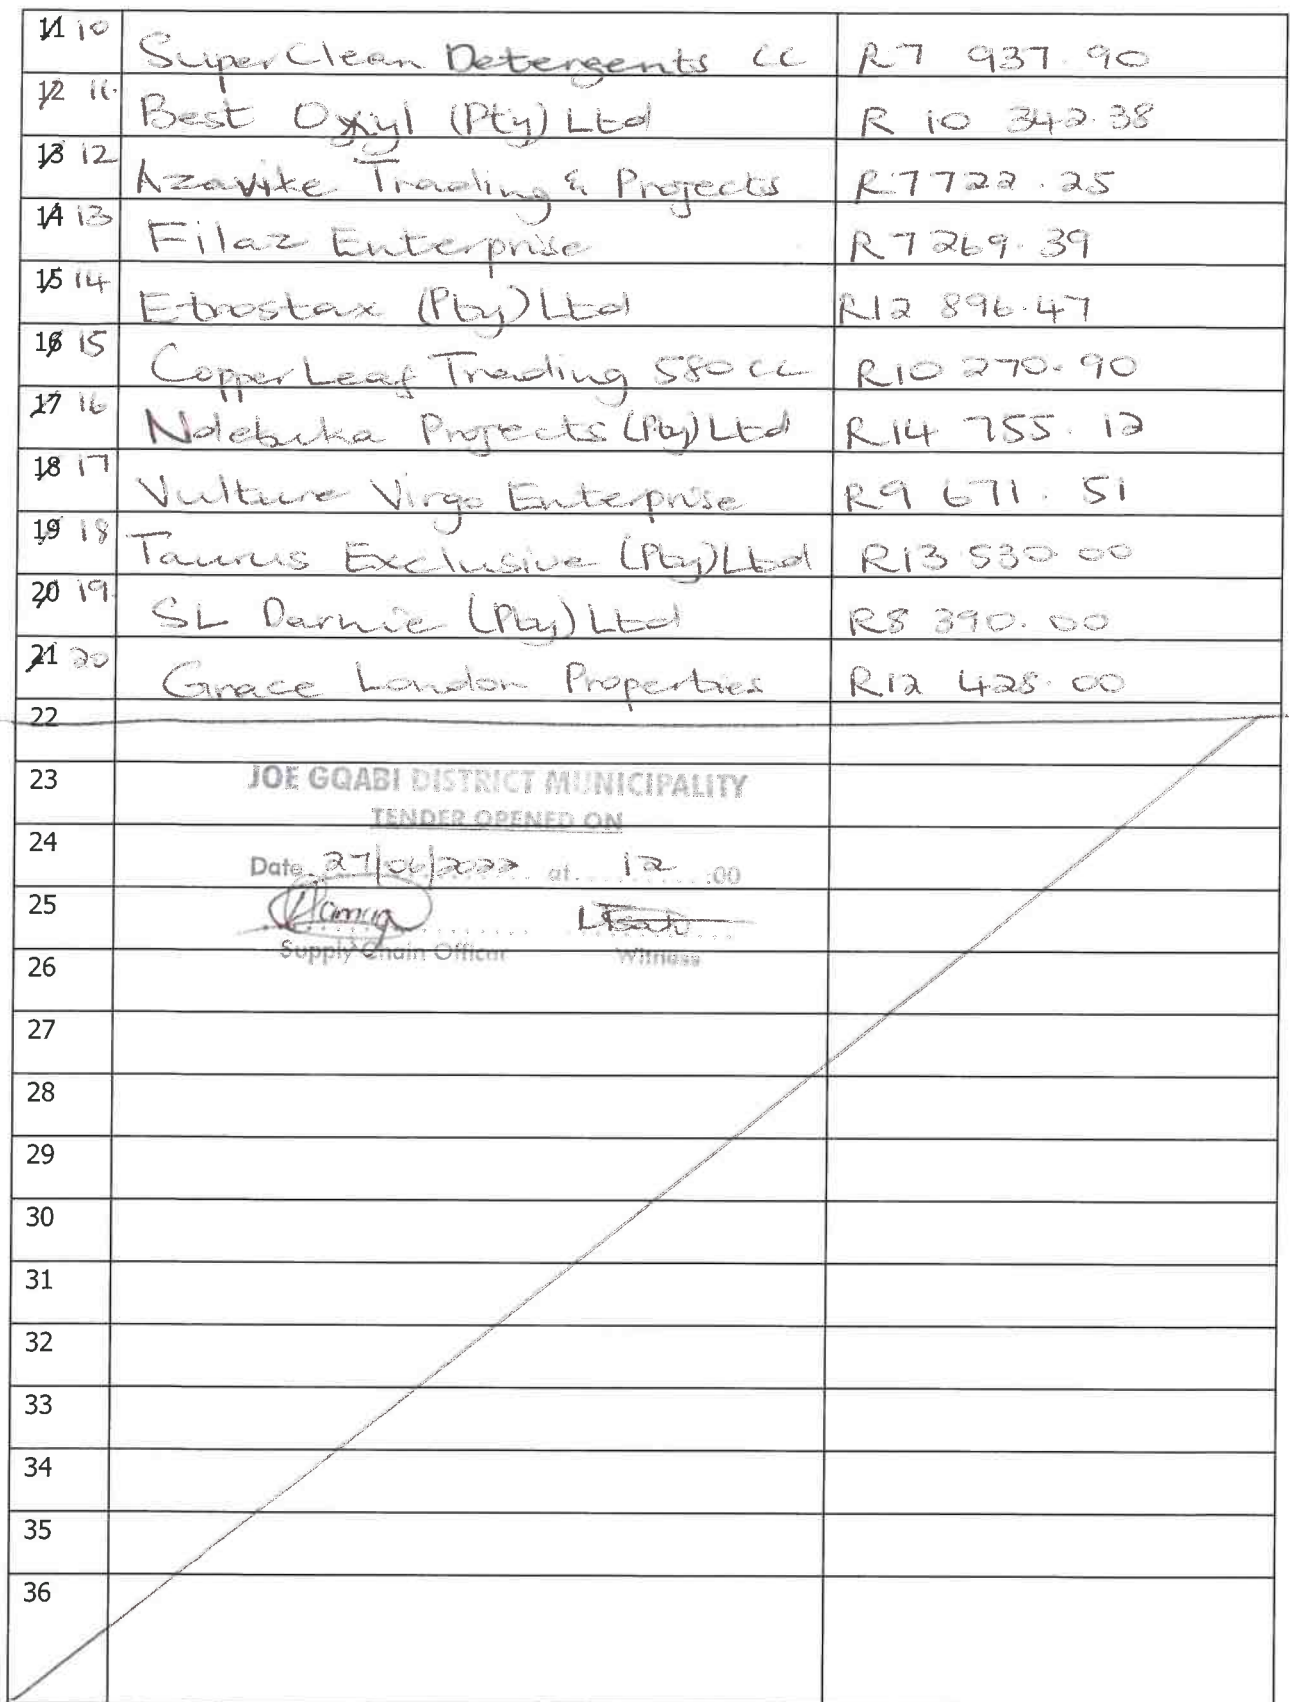 11 10 SuperClean Detergents CC R7 937.90
12 11. Best Oxiyl (Pty) Ltd R 10 342.38
13 12 Azavike Trading & Projects R7722.25
14 13 Filaz Enterprise R7269.39
15 14 Etrostax (Pty) Ltd R12 896.47
16 15 Copper Leaf Trading 580 CC R10 270.90
17 16 Ndebuka Projects (Pty) Ltd R14 755.12
18 17 Vulture Virgo Enterprise R9 671.51
19 18 Taurus Exclusive (Pty) Ltd R13 530.00
20 19 SL Darnie (Pty) Ltd R8 390.00
21 20 Grace London Properties R12 428.00
22
23 JOE GQABI DISTRICT MUNICIPALITY
TENDER OPENED ON
24
Date 27/06/2022 at 12 :00
25
Supply Chain Officer Witness
26
27
28
29
30
31
32
33
34
35
36